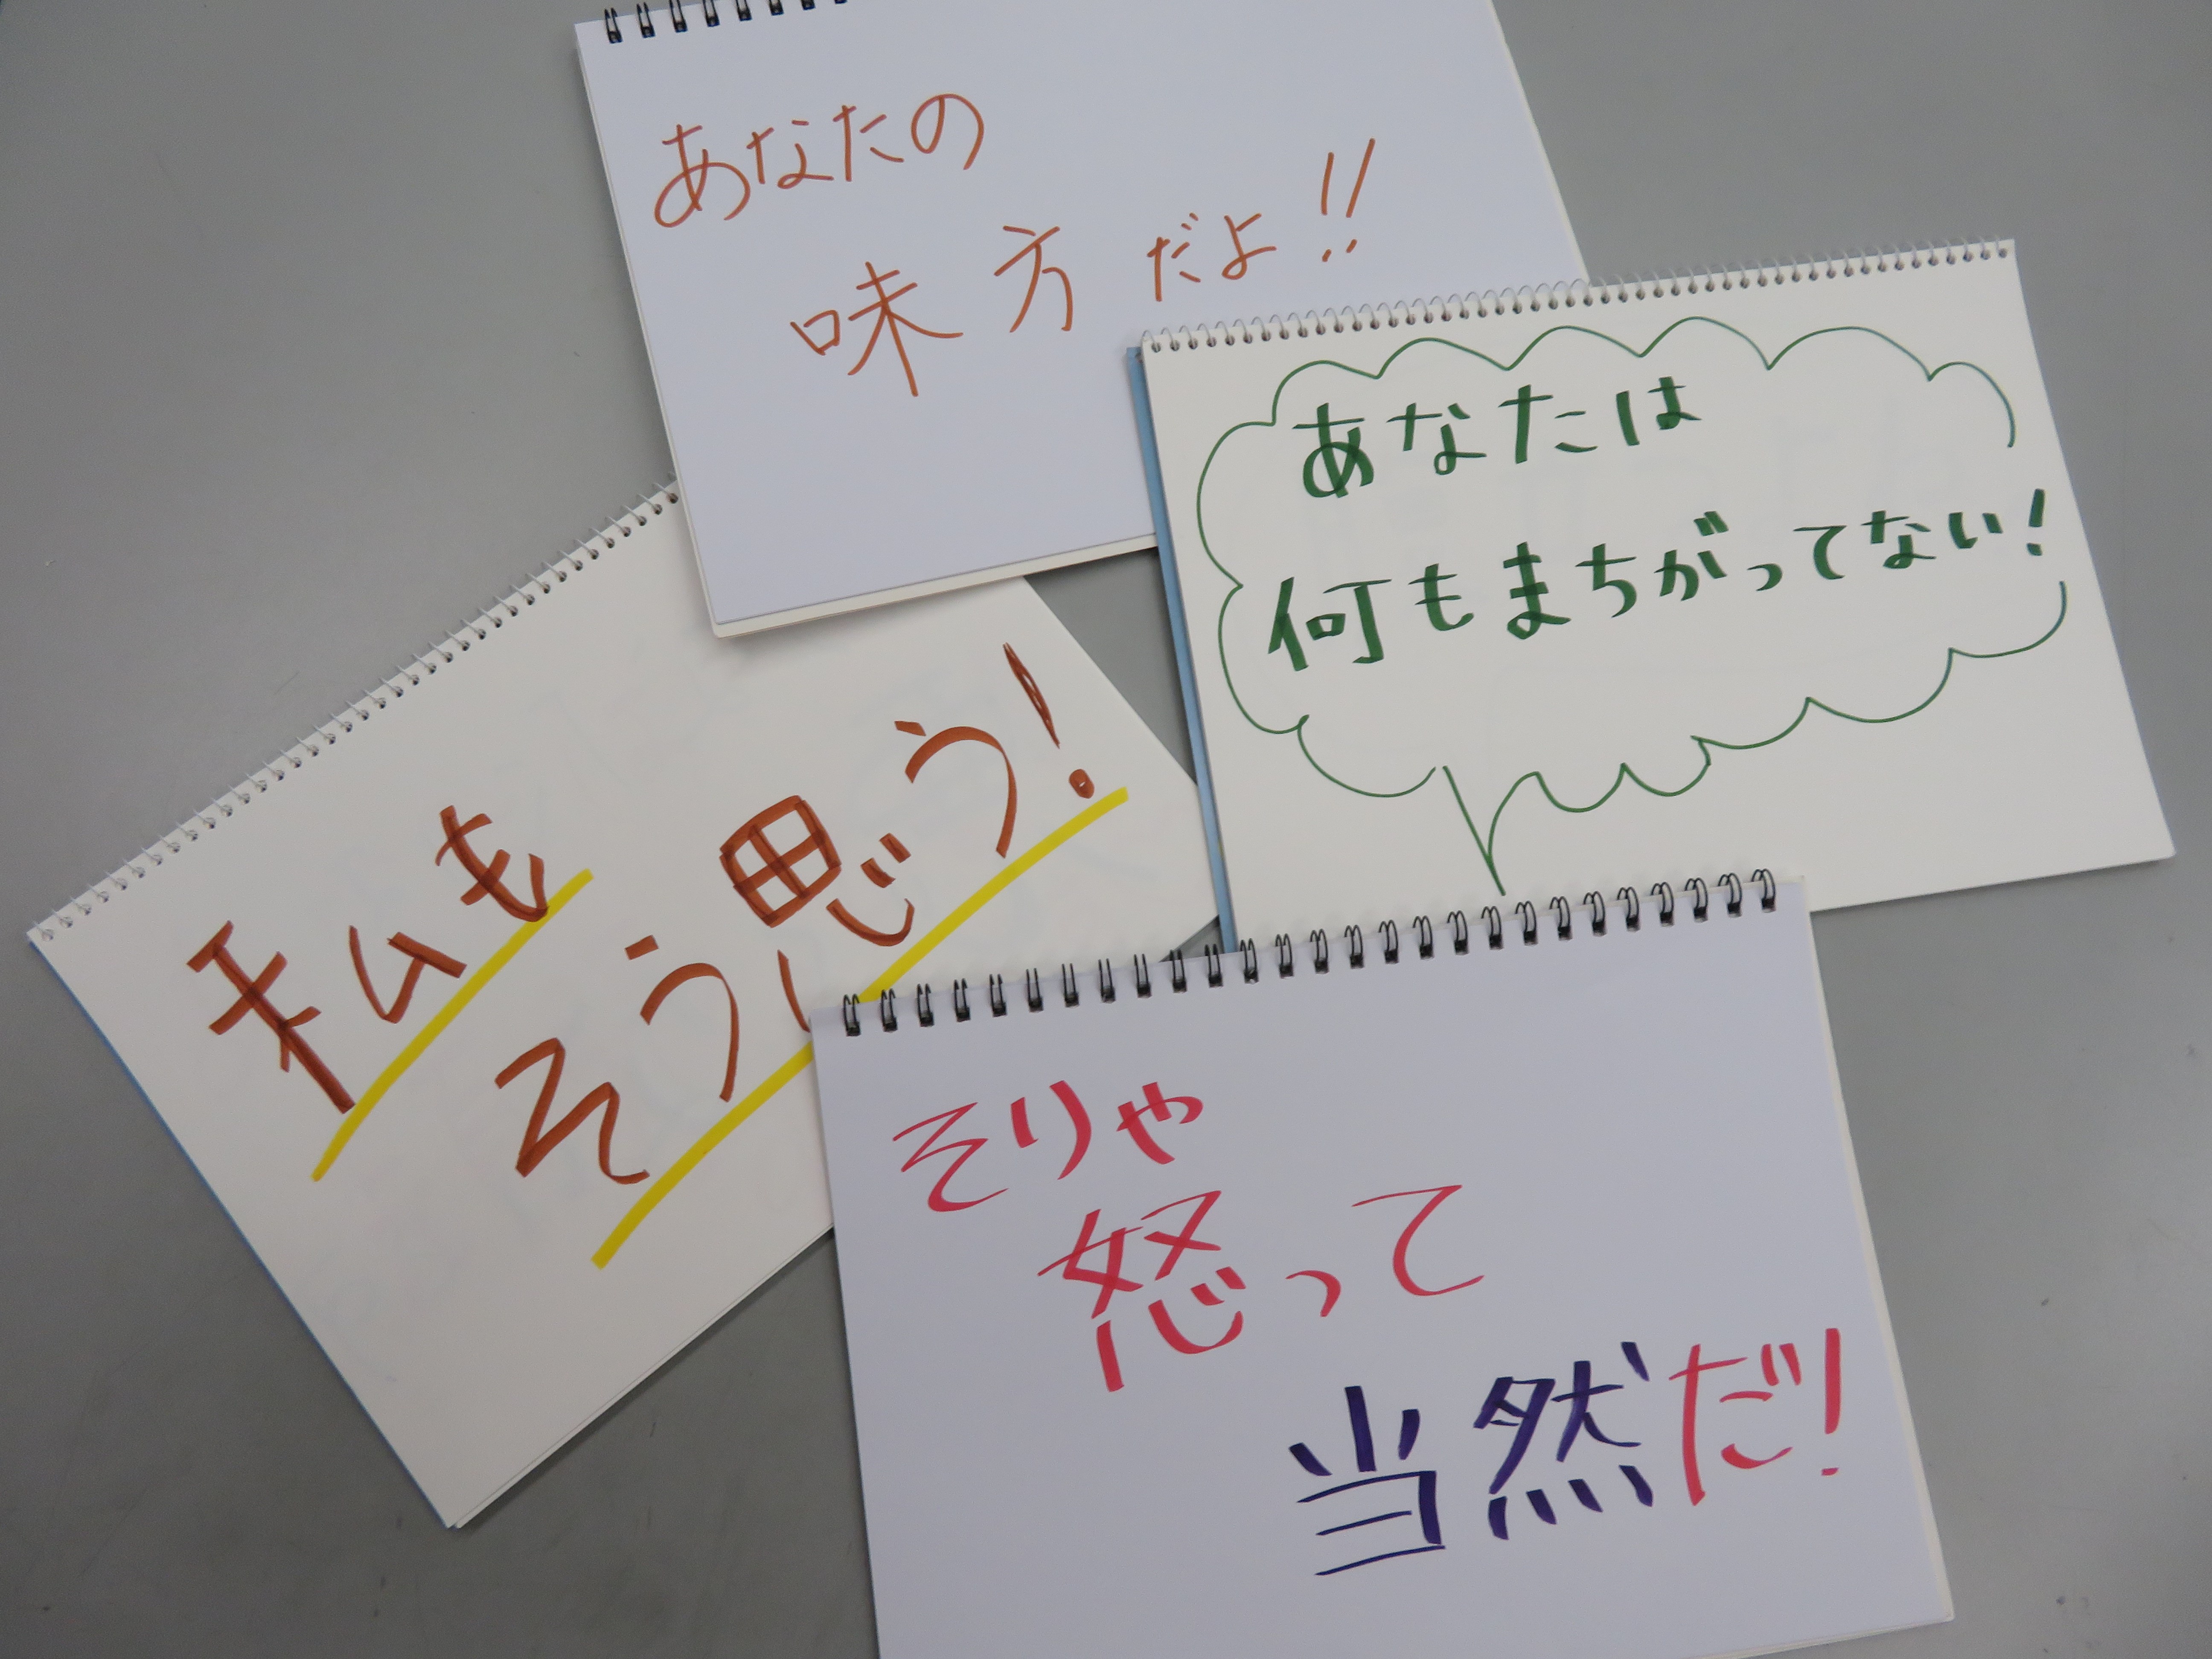 あなたの
味方だよ!!
あなたは
何もまちがってない!
私も
そう思う!
そりや
怒って
当然だ!